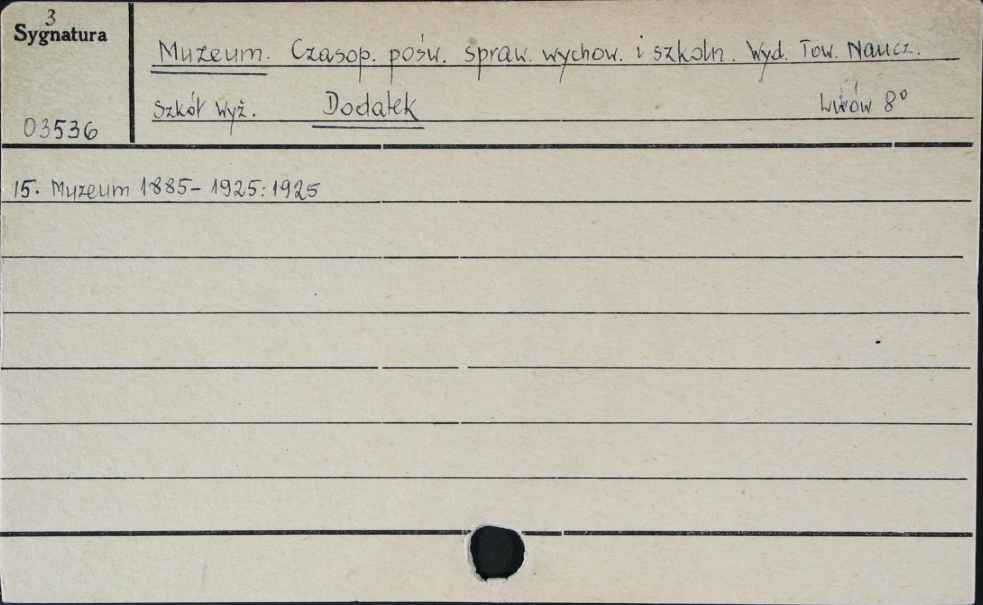 3
Sygnatura
Muzeum. Czasop. pośw. spraw. wychow. i szkoln. Wyd. Tow. Naucz.
Szkół Wyż. Dodatek Lwów 8°
03536
15. Muzeum 1885-1925:1925